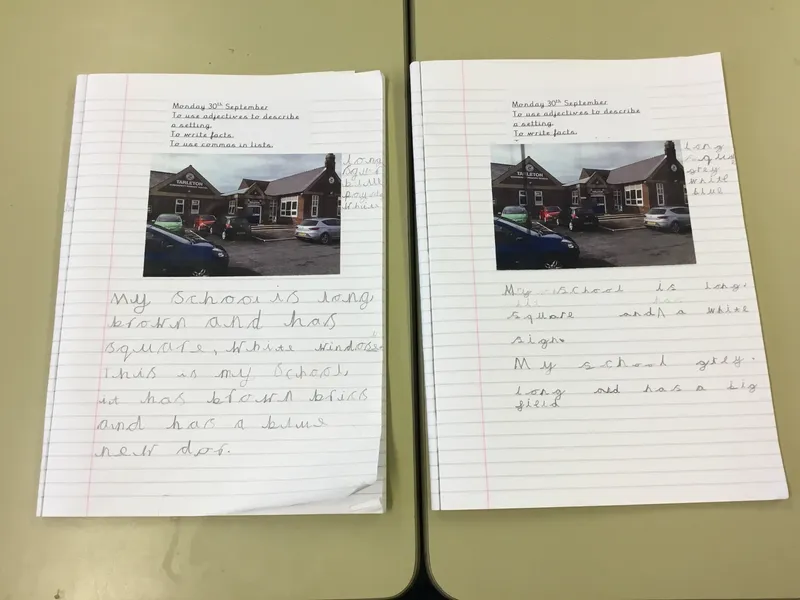 Monday 30th September
To use adjectives to describe
a setting.
To write facts.
To use commas in lists.
TARLETON
long
My school is long,
brown and has
square, white windose
this is my school,
it has brown brics
and has a blue
new dor.
Monday 30th September
To use adjectives to describe
a setting.
To write facts.
TARLETON
long
grey
white
blue
My school is long,
has
square and a white
sign.
My school grey.
long and has a big
field